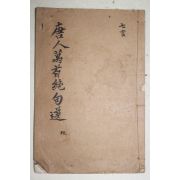 七言
唐人萬首絶句選